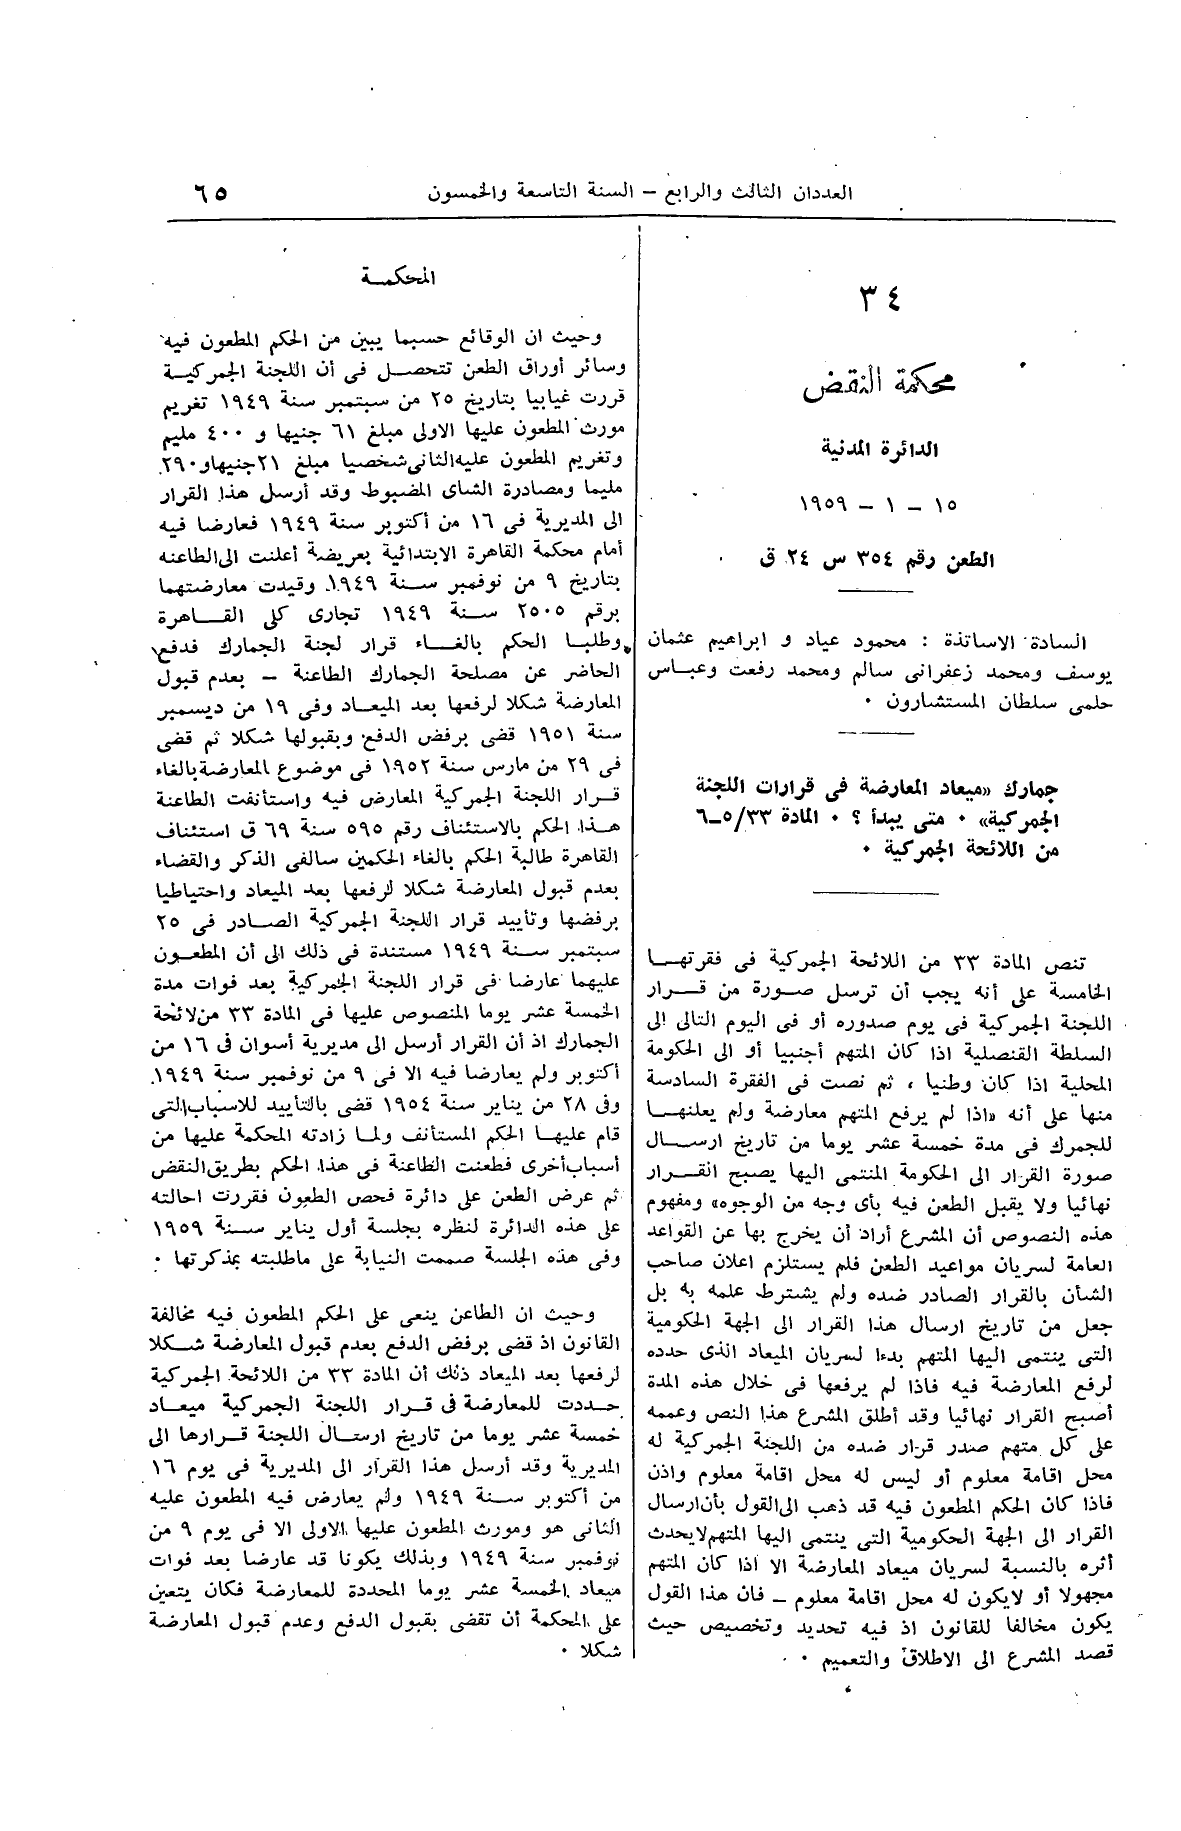 العددان الثالث والرابع – السنة التاسعة والخمسون
٦٥
٣٤
محكمة النقض
الدائرة المدنية
١٥ – ١ – ١٩٥٩
الطعن رقم ٣٥٤ س ٢٤ ق
السادة الاساتذة : محمود عياد و ابراهيم عثمان
يوسف ومحمد زعفرانى سالم ومحمد رفعت وعباس
حلمى سلطان المستشارون ٠
جمارك «ميعاد المعارضة فى قرارات اللجنة
الجمركية» ٠ متى يبدأ ؟ ٠ المادة ٥/٣٣–٦
من اللائحة الجمركية ٠
تنص المادة ٣٣ من اللائحة الجمركية فى فقرتها
الخامسة على أنه يجب أن ترسل صورة من قرار
اللجنة الجمركية فى يوم صدوره أو فى اليوم التالى الى
السلطة القنصلية اذا كان المتهم أجنبيا أو الى الحكومة
المحلية اذا كان وطنيا ، ثم نصت فى الفقرة السادسة
منها على أنه «اذا لم يرفع المتهم معارضة ولم يعلنها
للجمرك فى مدة خمسة عشر يوما من تاريخ ارسال
صورة القرار الى الحكومة المنتمى اليها يصبح القرار
نهائيا ولا يقبل الطعن فيه بأى وجه من الوجوه» ومفهوم
هذه النصوص أن المشرع أراد أن يخرج بها عن القواعد
العامة لسريان مواعيد الطعن فلم يستلزم اعلان صاحب
الشأن بالقرار الصادر ضده ولم يشترط علمه به بل
جعل من تاريخ ارسال هذا القرار الى الجهة الحكومية
التى ينتمى اليها المتهم بدءا لسريان الميعاد الذى حدده
لرفع المعارضة فيه فاذا لم يرفعها فى خلال هذه المدة
أصبح القرار نهائيا وقد أطلق المشرع هذا النص وعممه
على كل متهم صدر قرار ضده من اللجنة الجمركية له
محل اقامة معلوم أو ليس له محل اقامة معلوم واذن
فاذا كان الحكم المطعون فيه قد ذهب الى القول بأن ارسال
القرار الى الجهة الحكومية التى ينتمى اليها المتهم لا يحدث
أثره بالنسبة لسريان ميعاد المعارضة الا اذا كان المتهم
مجهولا أو لا يكون له محل اقامة معلوم – فان هذا القول
يكون مخالفا للقانون اذ فيه تحديد وتخصيص حيث
قصد المشرع الى الاطلاق والتعميم ٠
المحكمة
وحيث ان الوقائع حسبما يبين من الحكم المطعون فيه
وسائر أوراق الطعن تتحصل فى أن اللجنة الجمركية
قررت غيابيا بتاريخ ٢٥ من سبتمبر سنة ١٩٤٩ تغريم
مورث المطعون عليها الاولى مبلغ ٦١ جنيها و ٤٠٠ مليم
وتغريم المطعون عليه الثانى شخصيا مبلغ ٢١ جنيها و ٢٩٠
مليما ومصادرة الشاى المضبوط وقد أرسل هذا القرار
الى المديرية فى ١٦ من أكتوبر سنة ١٩٤٩ فعارضا فيه
أمام محكمة القاهرة الابتدائية بعريضة أعلنت الى الطاعنه
بتاريخ ٩ من نوفمبر سنة ١٩٤٩ وقيدت معارضتهما
برقم ٢٥٠٥ سنة ١٩٤٩ تجارى كلى القاهرة
وطلبا الحكم بالغاء قرار لجنة الجمارك فدفع
الحاضر عن مصلحة الجمارك الطاعنة – بعدم قبول
المعارضة شكلا لرفعها بعد الميعاد وفى ١٩ من ديسمبر
سنة ١٩٥١ قضى برفض الدفع وبقبولها شكلا ثم قضى
فى ٢٩ من مارس سنة ١٩٥٢ فى موضوع المعارضة بالغاء
قرار اللجنة الجمركية المعارض فيه واستأنفت الطاعنة
هذا الحكم بالاستئناف رقم ٥٩٥ سنة ٦٩ ق استئناف
القاهرة طالبة الحكم بالغاء الحكمين سالفى الذكر والقضاء
بعدم قبول المعارضة شكلا لرفعها بعد الميعاد واحتياطيا
برفضها وتأييد قرار اللجنة الجمركية الصادر فى ٢٥
سبتمبر سنة ١٩٤٩ مستندة فى ذلك الى أن المطعون
عليهما عارضا فى قرار اللجنة الجمركية بعد فوات مدة
الخمسة عشر يوما المنصوص عليها فى المادة ٣٣ من لائحة
الجمارك اذ أن القرار أرسل الى مديرية أسوان فى ١٦ من
أكتوبر ولم يعارضا فيه الا فى ٩ من نوفمبر سنة ١٩٤٩
وفى ٢٨ من يناير سنة ١٩٥٤ قضى بالتأييد للاسباب التى
قام عليها الحكم المستأنف ولما زادته المحكمة عليها من
أسباب أخرى فطعنت الطاعنة فى هذا الحكم بطريق النقض
ثم عرض الطعن على دائرة فحص الطعون فقررت احالته
على هذه الدائرة لنظره بجلسة أول يناير سنة ١٩٥٩
وفى هذه الجلسة صممت النيابة على ماطلبته بمذكرتها ٠
وحيث ان الطاعن ينعى على الحكم المطعون فيه مخالفة
القانون اذ قضى برفض الدفع بعدم قبول المعارضة شكلا
لرفعها بعد الميعاد ذلك أن المادة ٣٣ من اللائحة الجمركية
حددت للمعارضة فى قرار اللجنة الجمركية ميعاد
خمسة عشر يوما من تاريخ ارسال اللجنة قرارها الى
المديرية وقد أرسل هذا القرار الى المديرية فى يوم ١٦
من أكتوبر سنة ١٩٤٩ ولم يعارض فيه المطعون عليه
الثانى هو ومورث المطعون عليها الاولى الا فى يوم ٩ من
نوفمبر سنة ١٩٤٩ وبذلك يكونا قد عارضا بعد فوات
ميعاد الخمسة عشر يوما المحددة للمعارضة فكان يتعين
على المحكمة أن تقضى بقبول الدفع وعدم قبول المعارضة
شكلا ٠